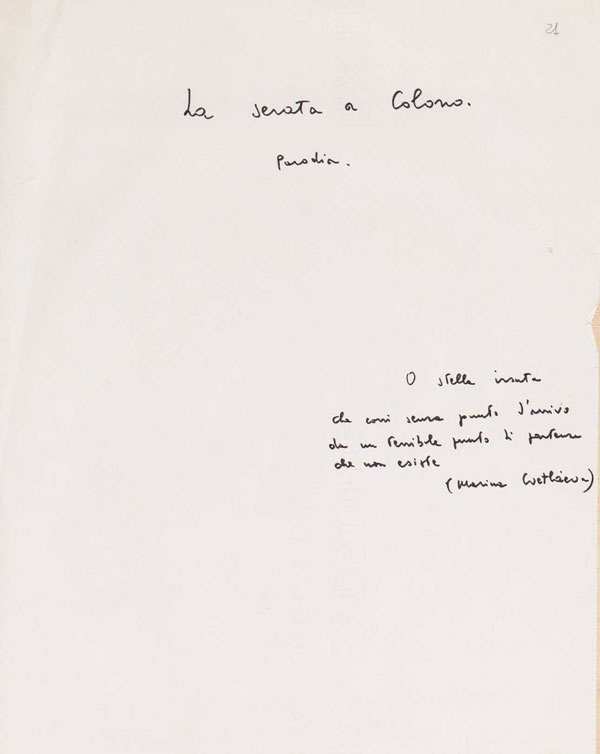 21
La serata a Colono.
Parodia.
O stella irsuta
che corri senza punto d'arrivo
da un terribile punto di partenza
che non esiste
(Marina Cvetàeva)